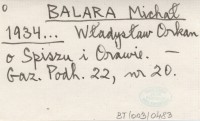 o
BALARA Michał
1934... Władysław Orkan
o Spiszu i Orawie. —
Gaz. Podh. 22, nr 20.
BT/003/0483